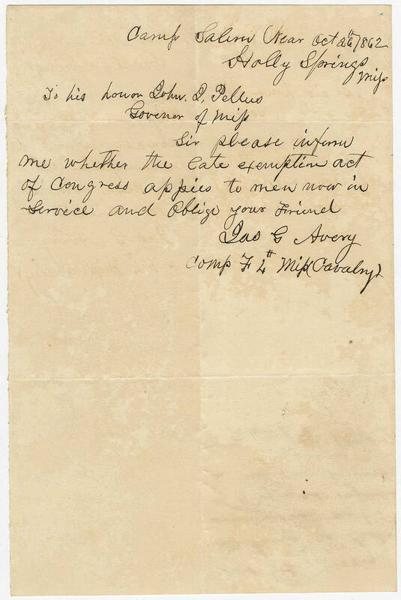 Camp Salem Near Oct 26th 1862
Holly Springs
Miss
To his honor John. D. Pettus
Govener of Miss
Sir please inform
me whether the late exemption act
of Congress appies to men now in
Service and Oblige your Friend
Jas G Avery
Comp F 4th Miss (Cavalry)